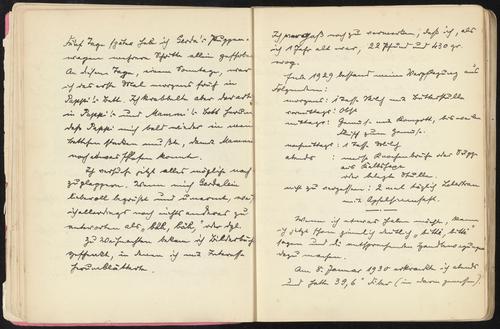 Fünf Tage später hab ich Gerda's Puppen-
wagen mehrere Schritte allein geschoben
An diesem Tage, einem Sonntage, war
ich das erste Mal morgens früh in
Pappi's Bett. Ich krabbelte aber derart
in Pappi's und Mammi's Bett herum
daß Pappi mich bald wieder in mein
Bettchen stecken mußte, damit Mammi
noch etwas schlafen konnte.
Ich versuch jetzt alles mögliche nach-
zuplappern. Wenn mich Gerdalein
liebevoll begrüßt und umarmt, weiß
ich allerdings noch nichts anderes zu
antworten als, bäh, bäh, oder dgl.
Zu Weihnachten bekam ich Bilderbücher
geschenkt, in denen ich mit Interesse
herumblättere.
Ich vergaß noch zu vermerken, daß ich, als
ich 1 Jahr alt war, 22 Pfund und 430 gr.
wog.
Ende 1929 bestand meine Verpflegung aus
Folgendem:
morgens: 1 Tasse Milch und Butterstulle
vormittags: Obst
mittags: Gemüse und Kompott, bis
zum Gemüse.
nachmittags: 1 Tasse Milch
abends : Suppe
oder belegte Stullen
nicht zu vergessen: 2 mal täglich Lebertran
mit Apfelsinensaft.
Wenn ich etwas haben möchte, kann
ich jetzt schon ziemlich deutlich "bitte, bitte"
sagen und die entsprechenden Handbewegungen
dazu machen.
Am 5. Januar 1930 erkrankte ich abends
und hatte 39,6° Fieber (im Darm gemessen).